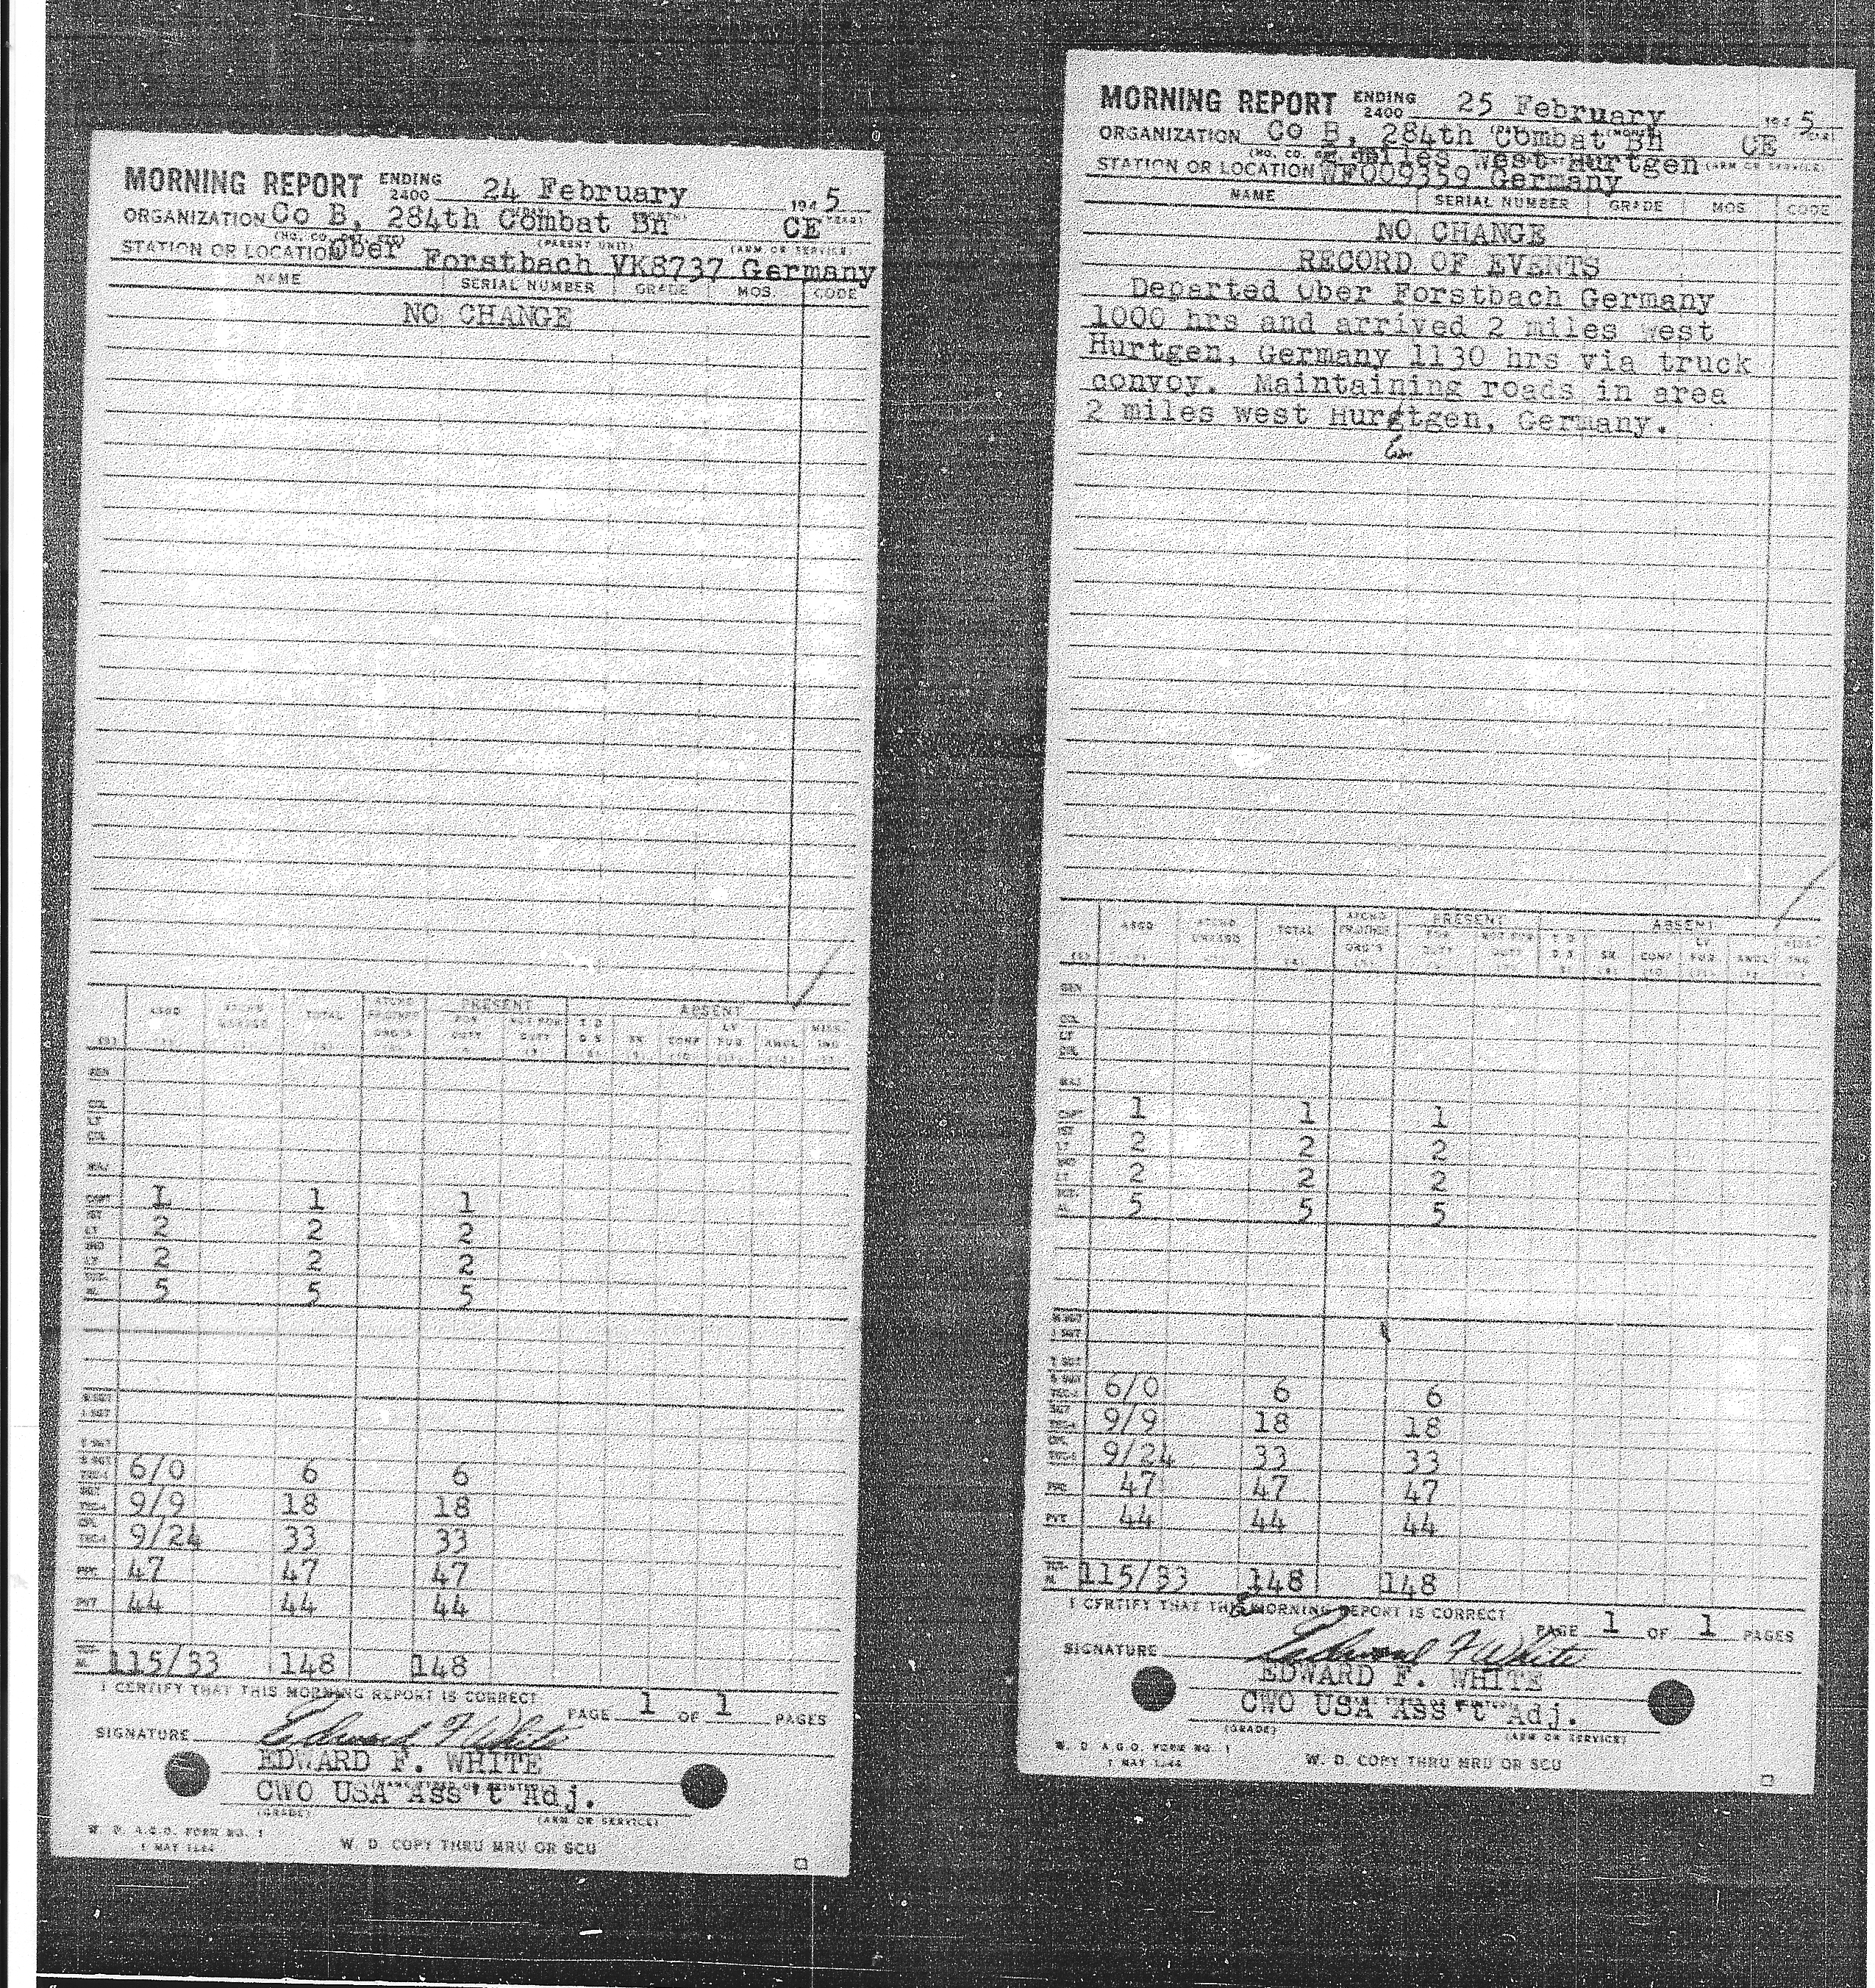 MORNING REPORT ENDING 2400 24 February 1945
ORGANIZATION Co B, 284th Combat Bn CE
(PARENT UNIT) (ARM OR SERVICE)
STATION OR LOCATION Ober Forstbach VK8737 Germany
NAME SERIAL NUMBER GRADE MOS. CODE
NO CHANGE
PRESENT ABSENT
ASGD TOTAL FOR DUTY NOT FOR DUTY SK CONF LV FUR AWOL MISSING
GEN
COL
LT COL
MAJ
CAPT 1 1 1
1ST LT 2 2 2
2ND LT 2 2 2
5 5 5
M SGT
1 SGT
T SGT
S SGT 6/0 6 6
9/9 18 18
CPL 9/24 33 33
PFC 47 47 47
PVT 44 44 44
115/33 148 148
I CERTIFY THAT THIS MORNING REPORT IS CORRECT
PAGE 1 OF 1 PAGES
SIGNATURE Edward F White
EDWARD F. WHITE
CWO USA Ass't Adj.
(GRADE) (ARM OR SERVICE)
W. D. A.G.O. FORM NO. 1
1 MAY 1944
W. D. COPY THRU MRU OR SCU
MORNING REPORT ENDING 2400 25 February 1945
ORGANIZATION Co B, 284th Combat Bn CE
2 miles West Hurtgen (ARM OR SERVICE)
STATION OR LOCATION WF009359 Germany
NAME SERIAL NUMBER GRADE MOS. CODE
NO CHANGE
RECORD OF EVENTS
Departed Ober Forstbach Germany
1000 hrs and arrived 2 miles west
Hurtgen, Germany 1130 hrs via truck
convoy. Maintaining roads in area
2 miles west Hurgtgen, Germany.
PRESENT ABSENT
ASGD TOTAL FOR DUTY NOT FOR DUTY SK CONF LV FUR AWOL MISSING
GEN
COL
LT COL
MAJ
1 1 1
2 2 2
2 2 2
5 5 5
M SGT
1 SGT
T SGT
S SGT 6/0 6 6
9/9 18 18
9/24 33 33
PFC 47 47 47
PVT 44 44 44
115/33 148 148
I CERTIFY THAT THIS MORNING REPORT IS CORRECT
PAGE 1 OF 1 PAGES
SIGNATURE Edward F White
EDWARD F. WHITE
CWO USA Ass't Adj.
(GRADE) (ARM OR SERVICE)
W. D. A.G.O. FORM NO. 1
1 MAY 1944
W. D. COPY THRU MRU OR SCU